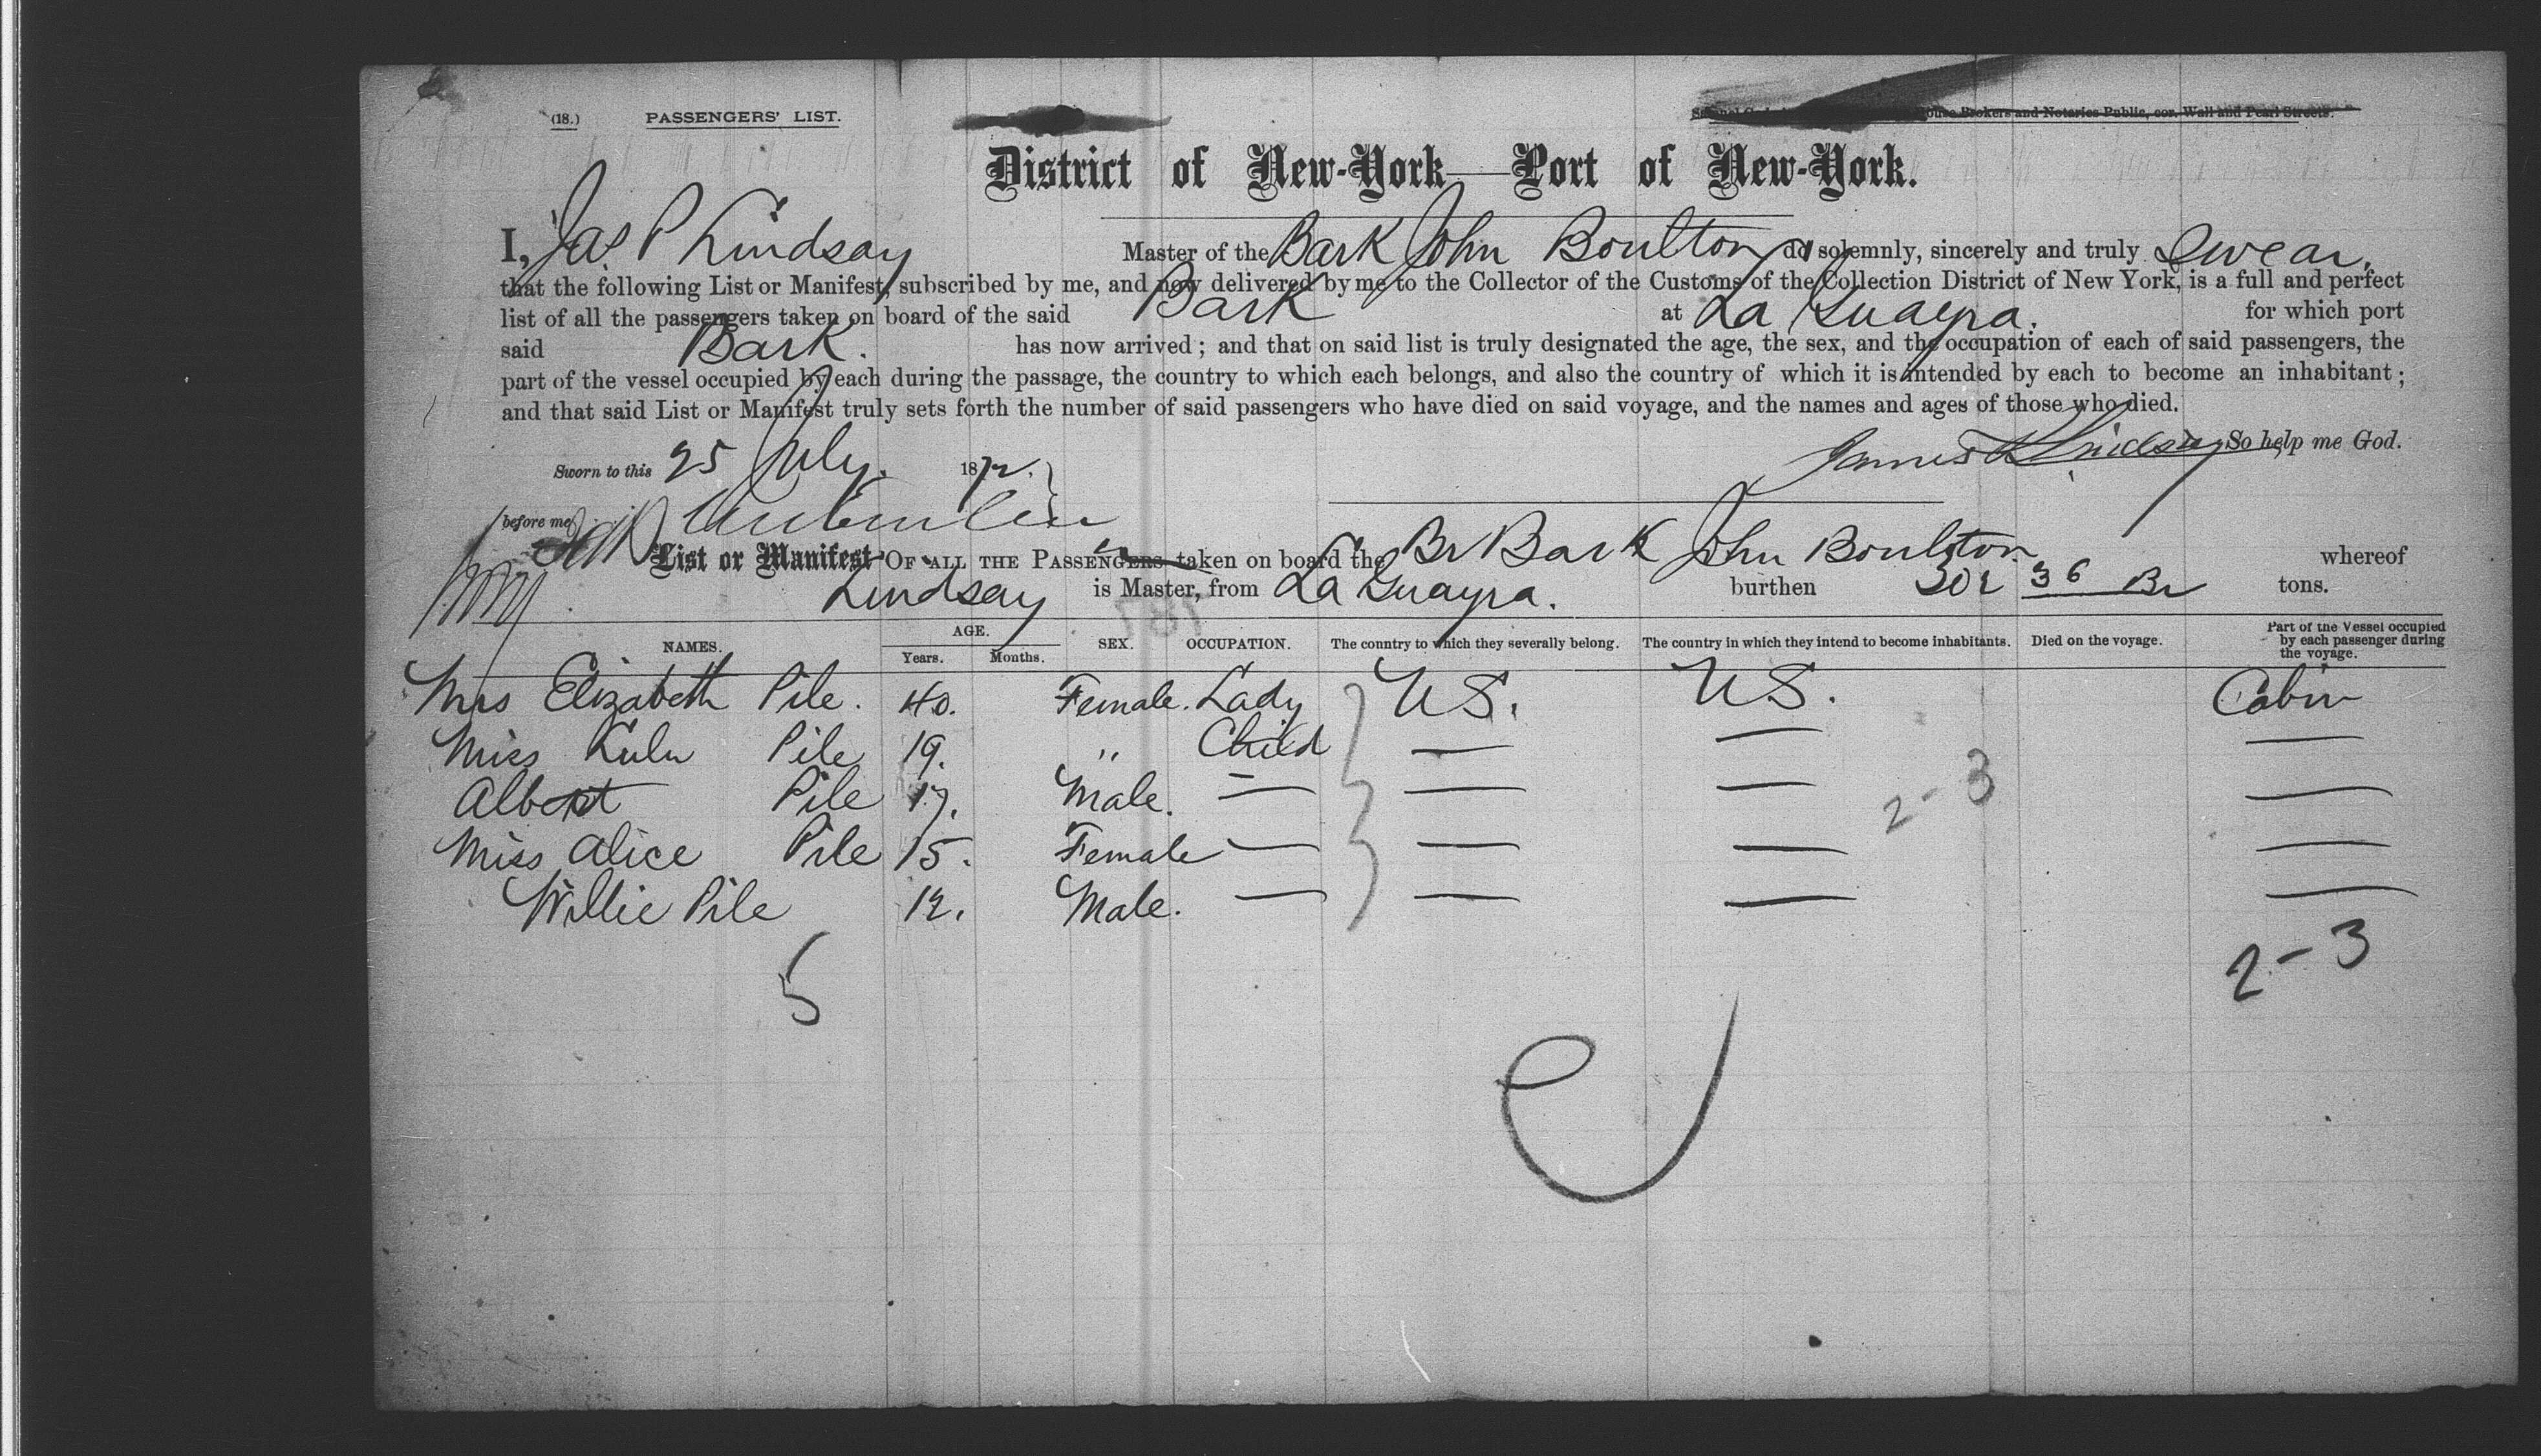 (18.) PASSENGERS' LIST.
House Brokers and Notaries Public, cor. Wall and Pearl Streets.
District of New-York—Port of New-York.
I, Jas P Lindsay Master of the Bark John Boulton do solemnly, sincerely and truly Swear,
that the following List or Manifest, subscribed by me, and now delivered by me to the Collector of the Customs of the Collection District of New York, is a full and perfect
list of all the passengers taken on board of the said Bark at La Guayra. for which port
said Bark. has now arrived; and that on said list is truly designated the age, the sex, and the occupation of each of said passengers, the
part of the vessel occupied by each during the passage, the country to which each belongs, and also the country of which it is intended by each to become an inhabitant;
and that said List or Manifest truly sets forth the number of said passengers who have died on said voyage, and the names and ages of those who died.
Sworn to this 25 July. 1872. James P Lindsay So help me God.
before me
List or Manifest OF ALL THE PASSENGERS taken on board the Br Bark John Boulton whereof
Lindsay is Master, from La Guayra. burthen 302 36 Br tons.
NAMES. AGE. Years. Months. SEX. OCCUPATION. The country to which they severally belong. The country in which they intend to become inhabitants. Died on the voyage. Part of the Vessel occupied by each passenger during the voyage.
Mrs Elizabeth Pile. 40. Female. Lady U S. U S. Cabin
Miss Lulu Pile 19. " Child — — —
Albert Pile 17. Male. — — — —
2-3
Miss Alice Pile 15. Female — — — —
Willie Pile 12. Male. — — — —
5 2-3